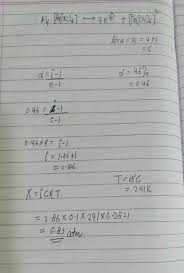 K4 [Fe(CN)6] → 4K⊕ + [Fe(CN)6]4-
n = 4+1
= 5
α = i-1
n-1
α = 46%
= 0.46
0.46 = i-1
5-1
0.46×4 = i-1
i = 1.84+1
= 2.86
T = 18°C
= 291K
π = iCRT
= 2.86 × 0.1 × 291 × 0.0821
= 6.83 atm